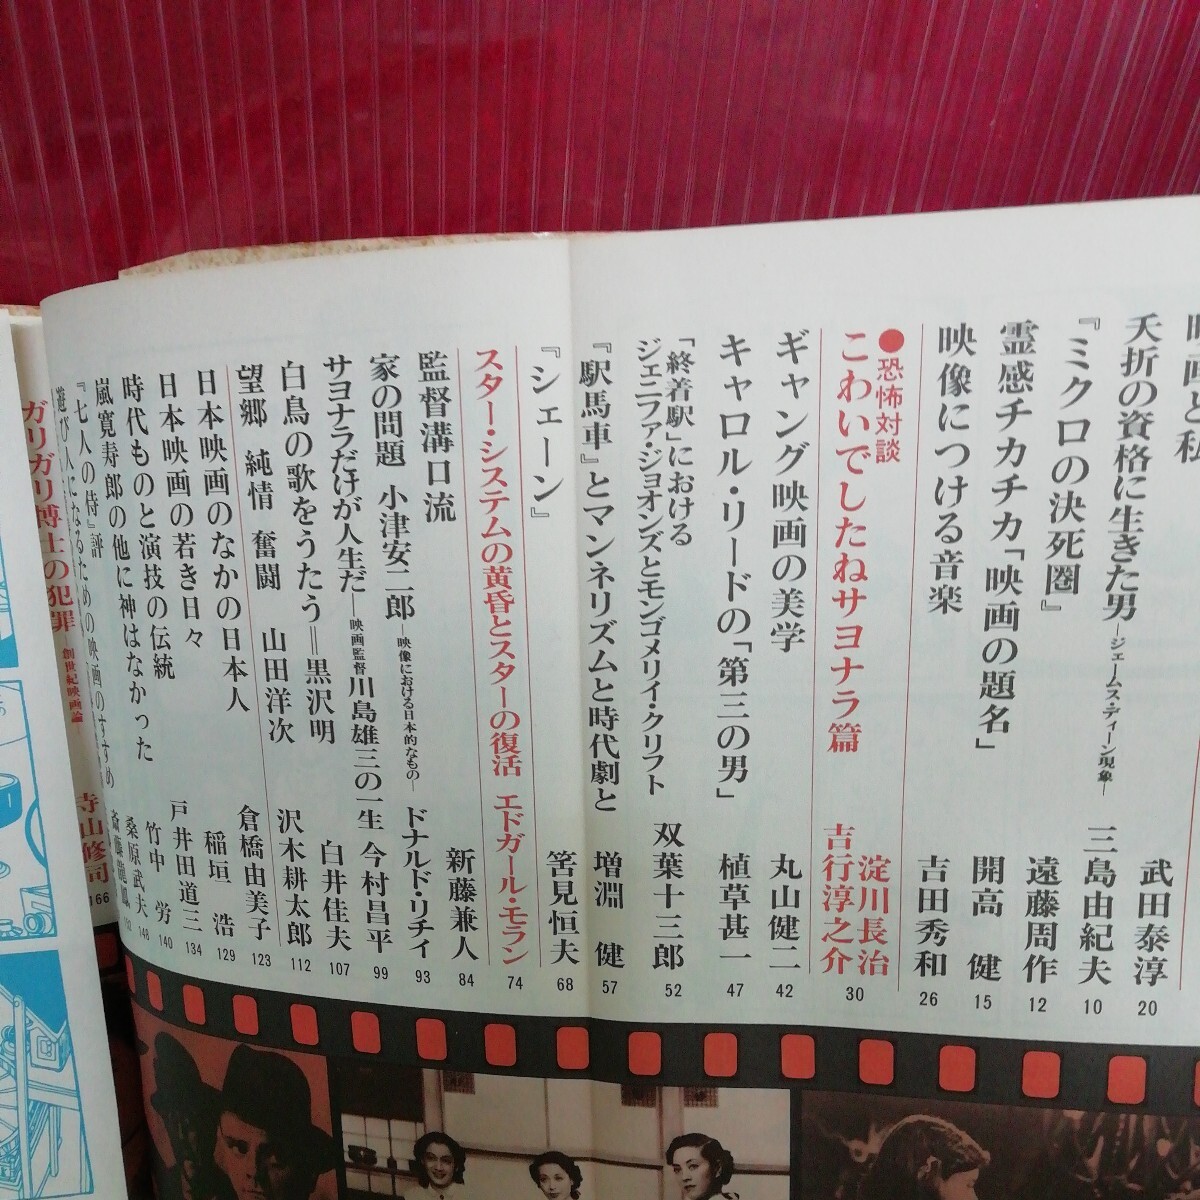 映画と私
夭折の資格に生きた男―ジェームス・ディーン現象― 武田泰淳 20
『ミクロの決死圏』 三島由紀夫 10
霊感チカチカ「映画の題名」 遠藤周作 12
映像につける音楽 開高 健 15
吉田秀和 26
●恐怖対談
こわいでしたねサヨナラ篇 淀川長治
吉行淳之介 30
ギャング映画の美学 丸山健二 42
キャロル・リードの「第三の男」 植草甚一 47
「終着駅」における
ジェニファ・ジョオンズとモンゴメリイ・クリフト 双葉十三郎 52
『駅馬車』とマンネリズムと時代劇と 増淵 健 57
『シェーン』 筈見恒夫 68
スター・システムの黄昏とスターの復活 エドガール・モラン 74
監督溝口流 新藤兼人 84
家の問題 小津安二郎―映像における日本的なもの― ドナルド・リチィ 93
サヨナラだけが人生だ―映画監督川島雄三の一生 今村昌平 99
白鳥の歌をうたう＝黒沢明 白井佳夫 107
望郷 純情 奮闘 山田洋次 沢木耕太郎 112
日本映画のなかの日本人 倉橋由美子 123
日本映画の若き日々 稲垣 浩 129
時代ものと演技の伝統 戸井田道三 134
嵐寛寿郎の他に神はなかった 竹中 労 140
『七人の侍』評 桑原武夫 148
遊び人になるための映画のすすめ
ガリガリ博士の犯罪―創世紀映画論― 寺山修司 166